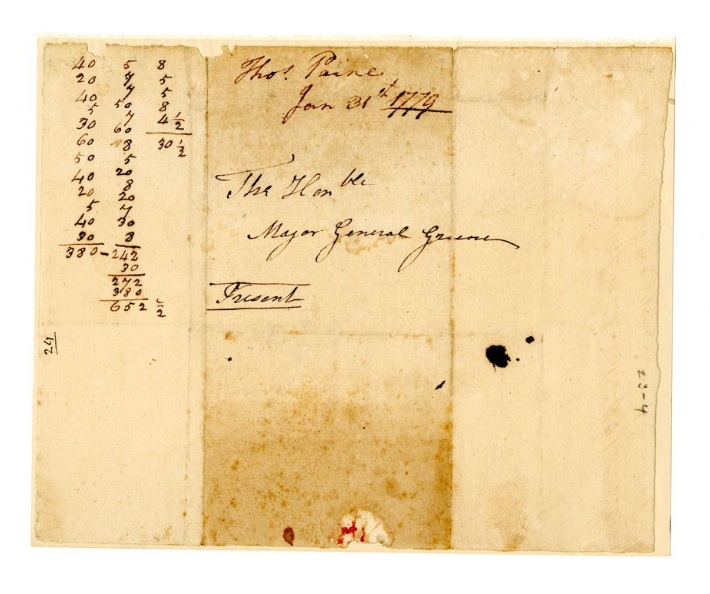 40 5 8
20 7 5
40 7 5
5 50 8
30 7 4 1/2
60 60 30 1/2
50 8
40 5
20 20
5 8
40 20
30 7
380 - 30
8
242
30
272
380
652 1/2
24
Thos. Paine
Jan 31st 1779
The Honble
Major General Greene
Present
23-4